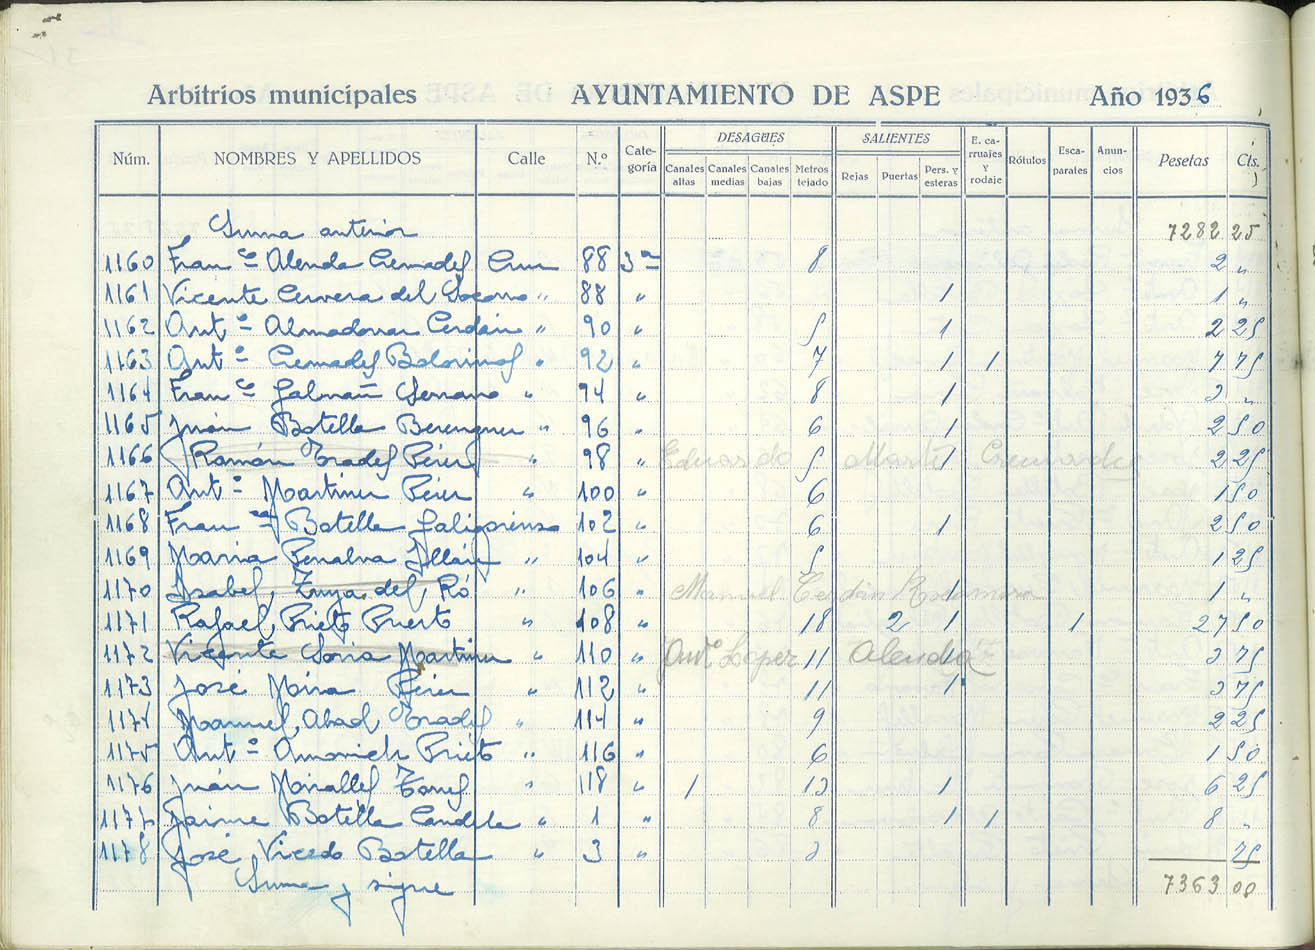 Arbitrios municipales AYUNTAMIENTO DE ASPE Año 1936
Núm. NOMBRES Y APELLIDOS Calle N.º Categoría DESAGÜES Canales altas Canales medias Canales bajas Metros tejado SALIENTES Rejas Puertas Pers. y esteras E. carruajes y rodaje Rótulos Escaparates Anuncios Pesetas Cts.
Suma anterior 7282 25
1160 Fran co Alenda Cremades Cruz 88 3 a 8 2 "
1161 Vicente Cervera del Socorro " 88 " 1 1 "
1162 Ant o Almodovar Cerdán " 90 " 5 1 2 25
1163 Ant o Cremades Botorinos " 92 " 7 1 1 7 75
1164 Fran co Galvañ Serrano " 94 " 8 1 3 "
1165 Juán Botella Berenguer " 96 " 6 1 2 50
1166 Ramón Prades Pérez " 98 " Eduardo 5 Martí 1 Cremades 2 25
1167 Ant o Martinez Pérez " 100 " 6 1 50
1168 Fran ca Botella Galiprienzo 102 " 6 1 2 50
1169 Maria Penalva Illán " 104 " 5 1 25
1170 Isabel del Ró " 106 " Manuel Cerdán 1 1 "
1171 Rafael Prieto Puerto " 108 " 18 2 1 1 27 50
1172 Vicente Soria Martinez " 110 " Antº López 11 Alenda 1 3 75
1173 José Mira Pérez " 112 " 11 1 3 75
1174 Manuel Abad Prades " 114 " 9 2 25
1175 Ant o Amorich Prieto " 116 " 6 1 50
1176 Juán Miralles Torres " 118 " 1 13 1 6 25
1177 Jaime Botella Candela " 1 " 8 1 1 8 "
1178 José Vicedo Botella " 3 " 3 75
Suma y sigue 7363 00